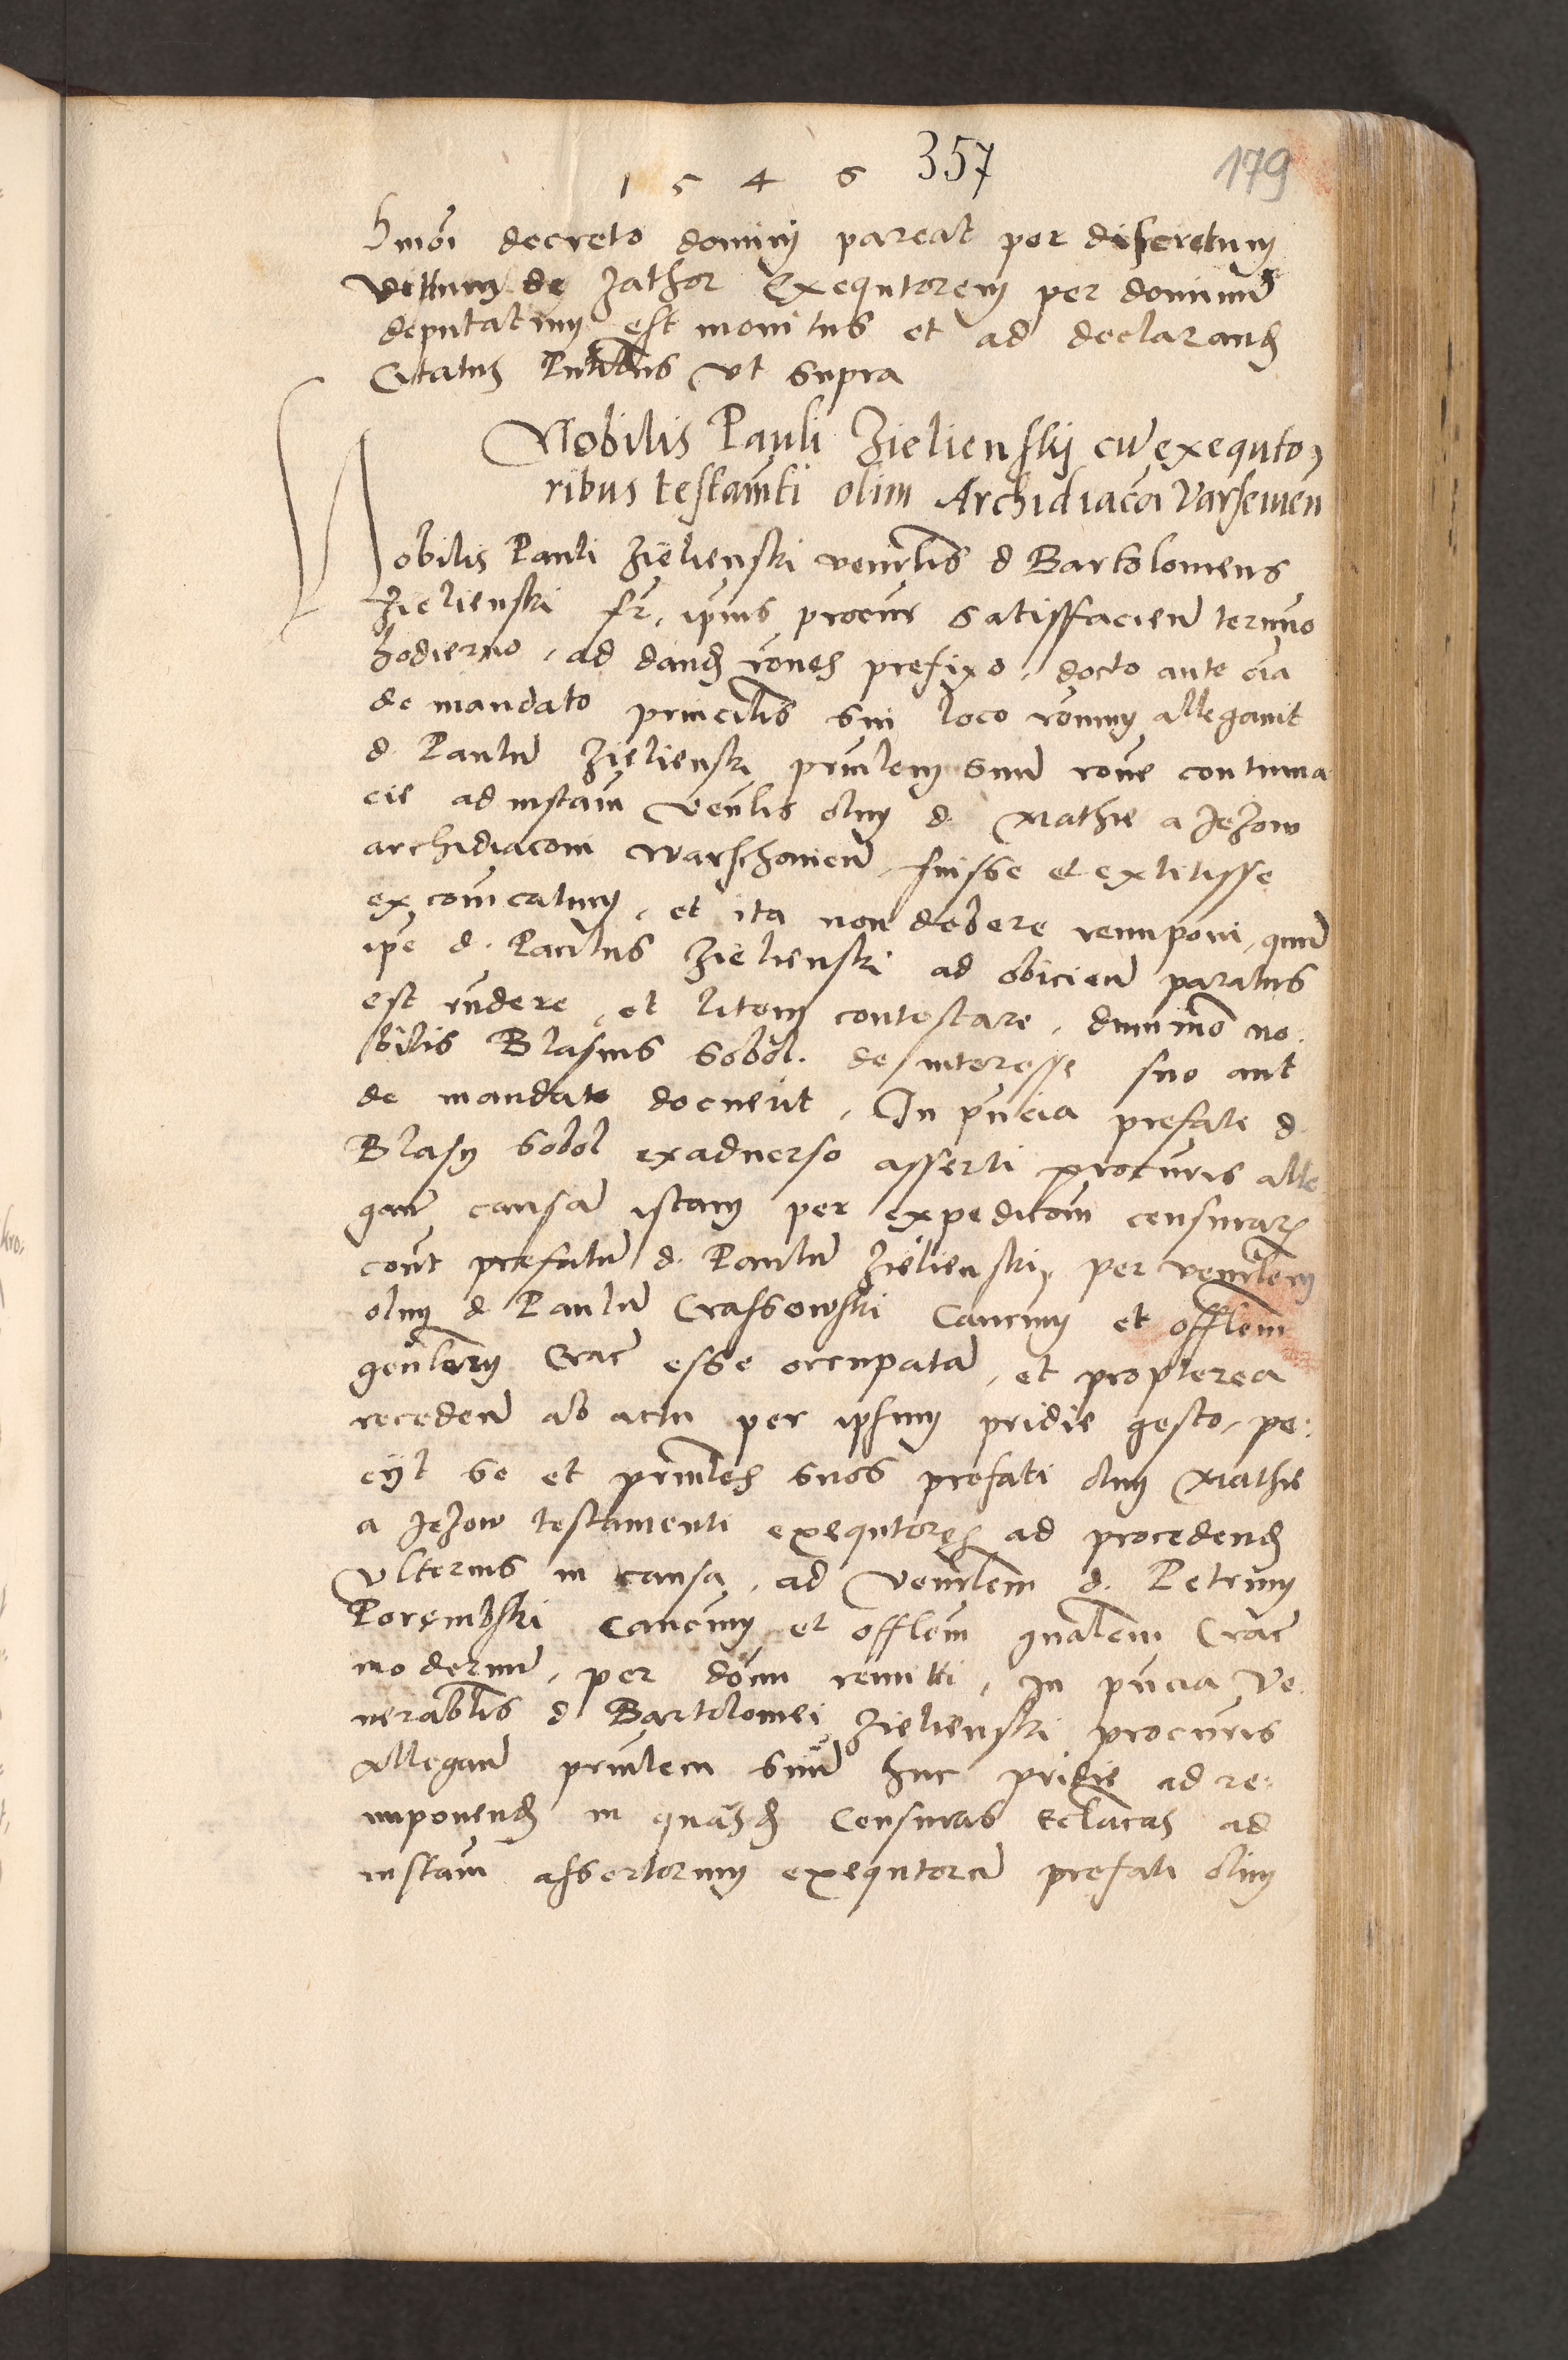 1546 357 179
hmoi decreto dominj pareat per discretum
Vittum de Jathor Exequtorem per dominu
deputatum est monitus et ad declarand
Citatus Pntibus Vt supra
Nobilis Pauli Zielienskj cu exequto
ribus testamti olim Archidiacoi Varsevien
Nobilis Pauli Zielienski venrlis d Bartolomeus
Zielienski fr. ipius procur satisffacien termino
hodierno, ad dand rones prefixo, docto ante oia
de mandato principlis sui loco ronum allegavit
d. Paulu Zielienski prinlem suu rone contuma
cie ad instam Venlis olim d. Mathie a Jezow
archidiaconi warschovien, fuisse et extitisse
excommcatum, et ita non debere reimponi, quin
ipe d. Paulus Zielienski ad obicien paratus
est rndere, et litem contestare, dummo no
bilis Blasius Sobol. de interesse suo aut
de mandato docuerit, In pncia prefate d.
Blasij Sobol exadverso asserti procuris alle
gan causam istam per expeditom censurar
cont prefatu d. Paulu Zielienski, per venrlem
olim d. Paulu Crassowski Cancum et offlem
genlem Crac esse occupata, et propterea
receden ab actu per ipsum pridie gesto, pe:
cijt se et prinles suos prefati olim Mathie
a Jezow testamenti exequtores ad procedend
Vlterius in causa, ad Venrlem d. Petrum
Porembski Cancum et offlem gnalem Crac
modernu, per dom remitti, In pncia Ve
nerablis d Bartolomei Zielienski procuris
Allegan prinlem suu huc pridie ad re:
imponend in quasd Censuras Ecclacas ad
instam assertorum exequtoru prefati olim